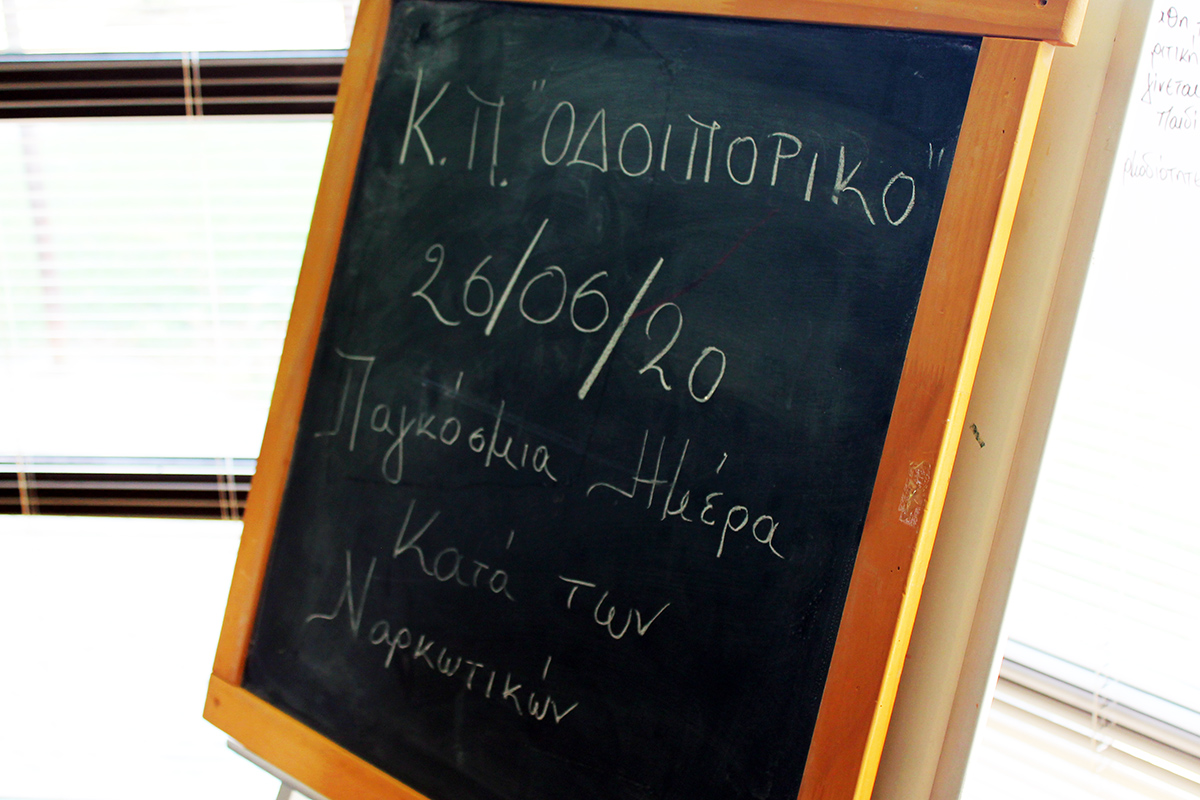 Κ.Π. "ΟΔΟΙΠΟΡΙΚΟ"
26/06/20
Παγκόσμια Ημέρα
Κατά των
Ναρκωτικών
γίνεται